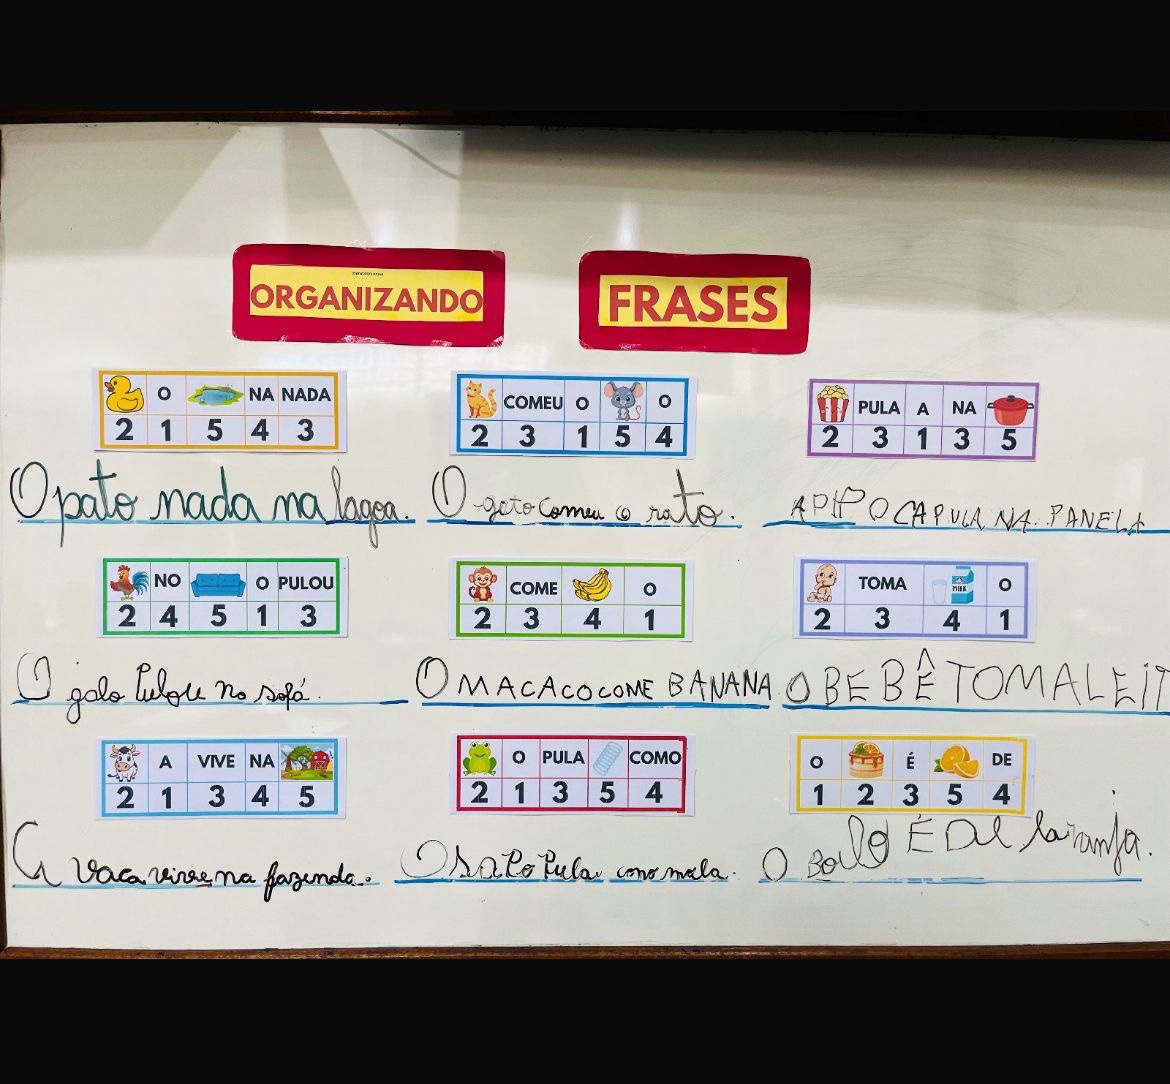 ORGANIZANDO FRASES
O NA NADA
2 1 5 4 3
COMEU O O
2 3 1 5 4
PULA A NA
2 3 1 3 5
O pato nada na lagoa.
O gato comeu o rato.
A PIPOCA PULA NA PANELA
NO O PULOU
2 4 5 1 3
COME O
2 3 4 1
TOMA MILK O
2 3 4 1
O galo Pulou no sofá.
O MACACO COME BANANA
O BEBÊ TOMA LEIT
A VIVE NA
2 1 3 4 5
O PULA COMO
2 1 3 5 4
O É DE
1 2 3 5 4
A vaca vive na fazenda.
O SAPo Pula como mola.
O Bolo É DE laranja.